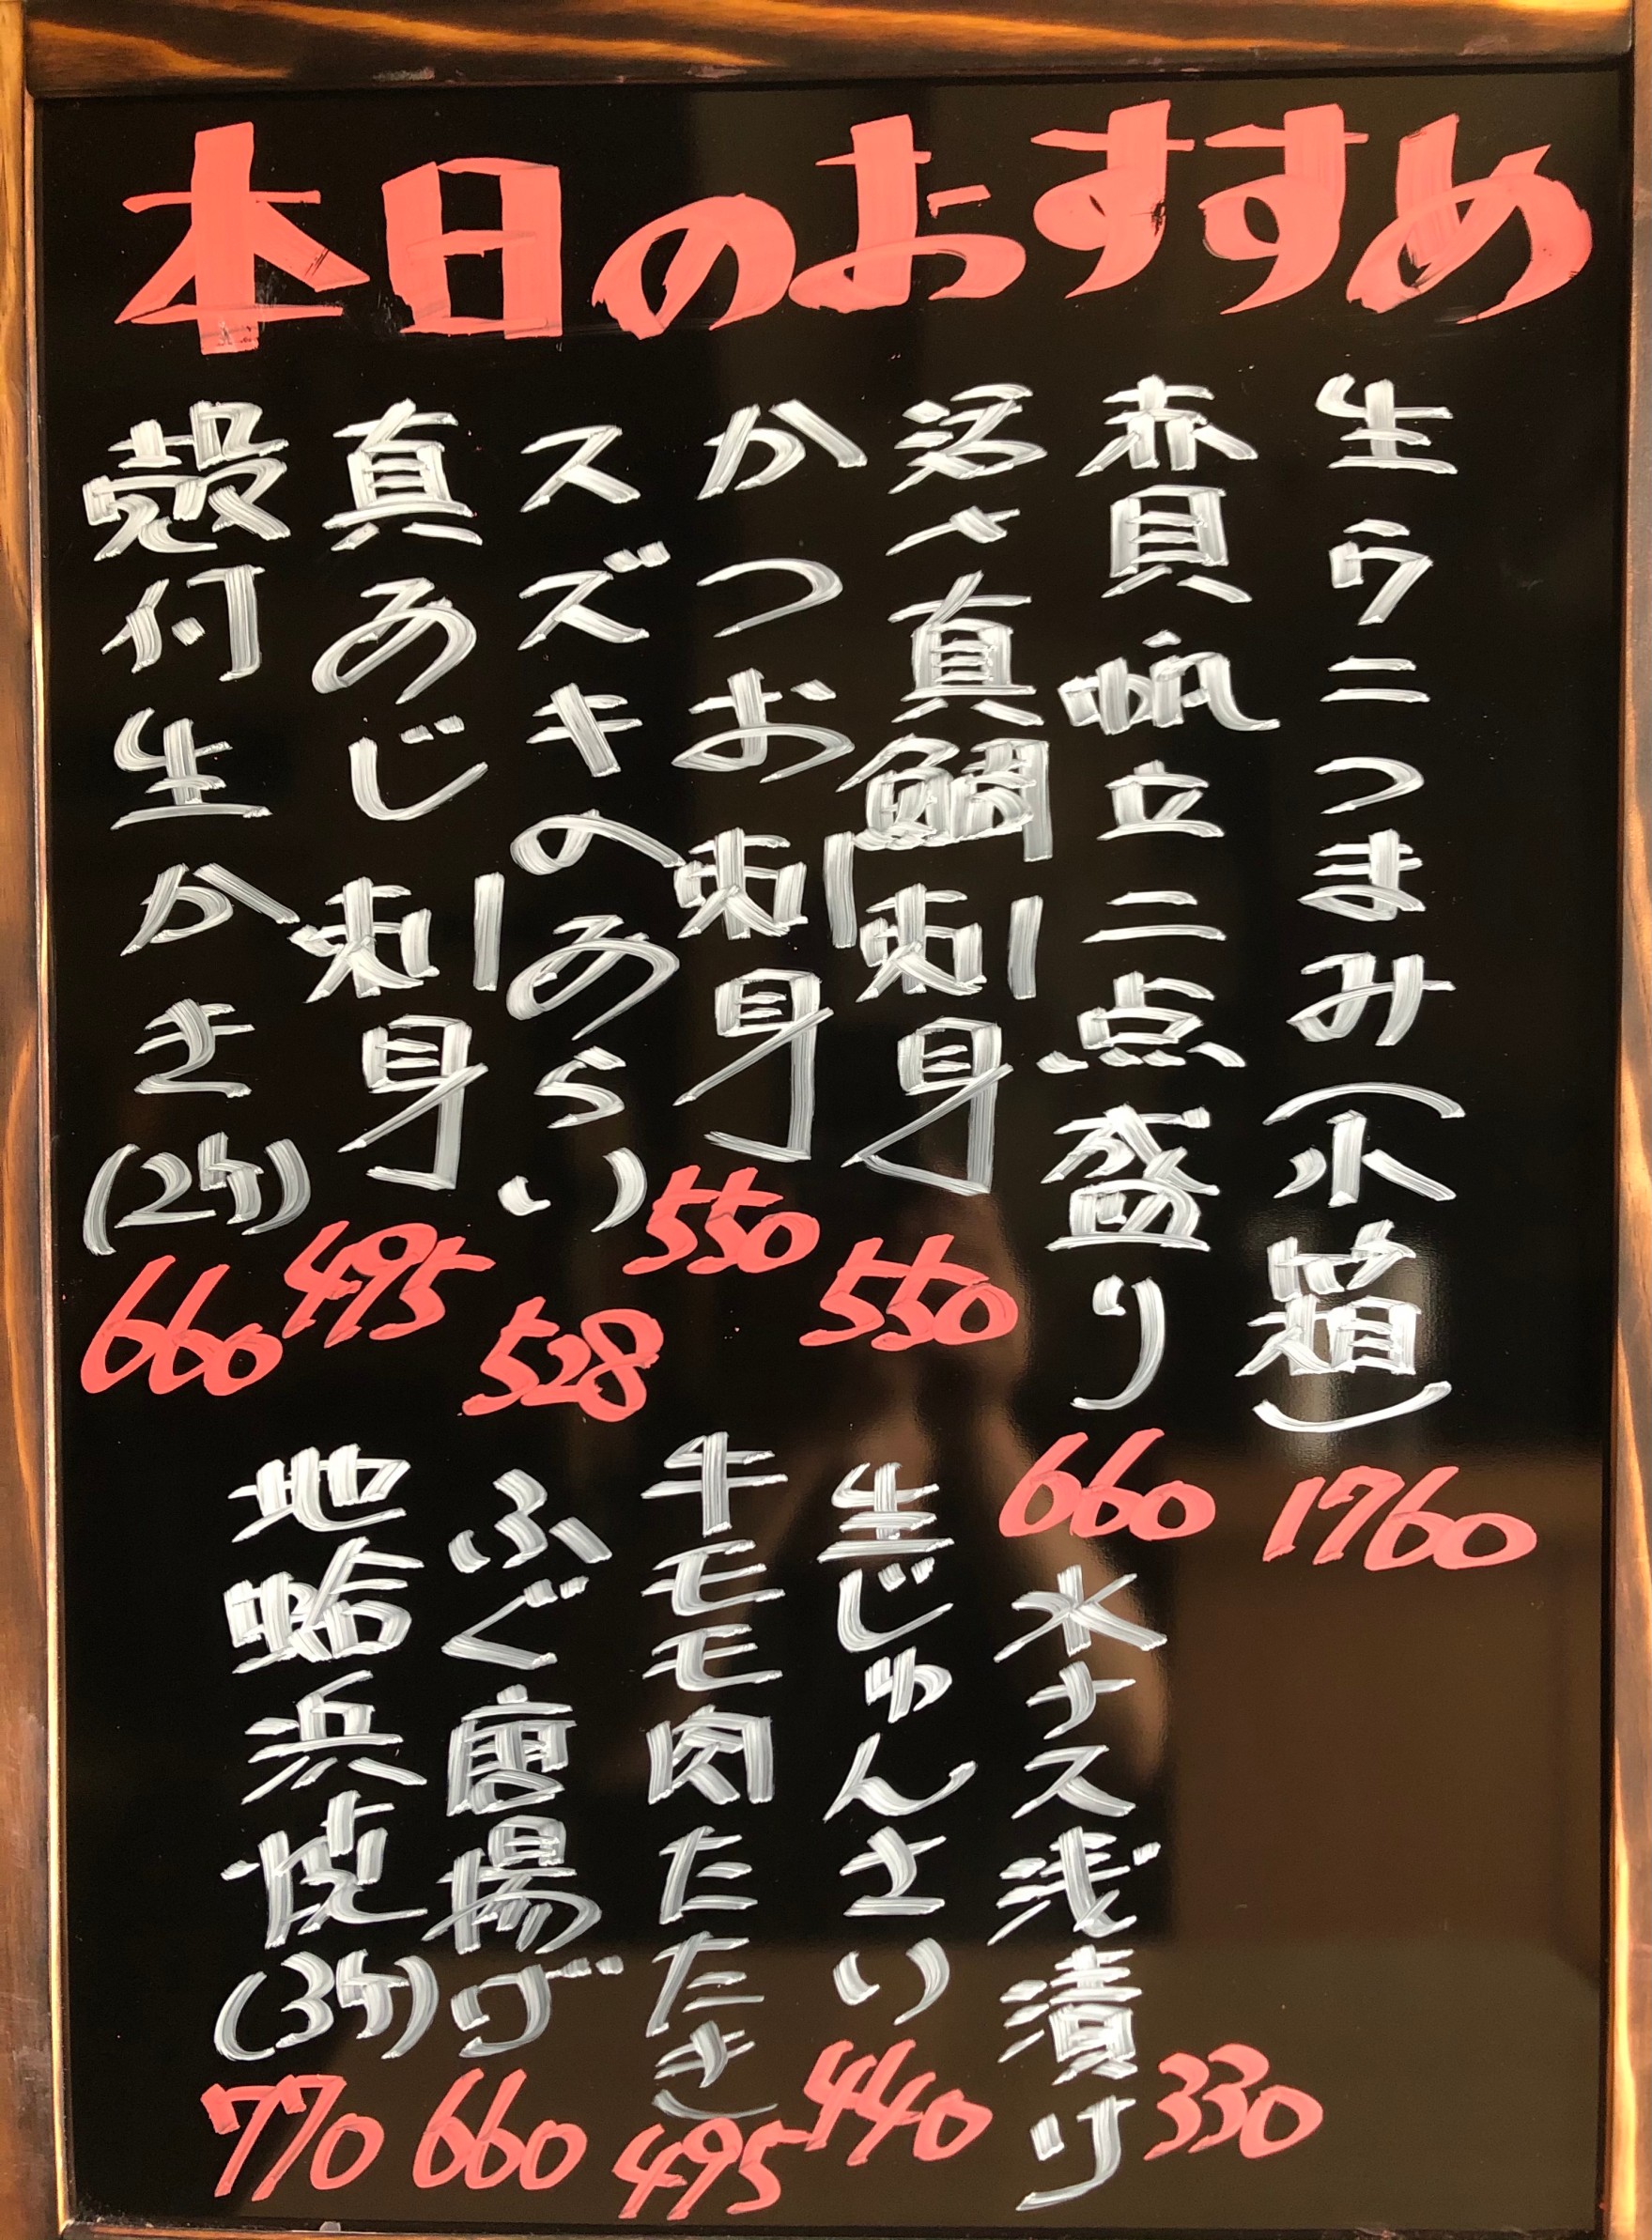 本日のおすすめ
生ウニつまみ(小箱) 1760
赤貝帆立二点盛り 660
活〆真鯛刺身 550
かつお刺身 550
スズキのあらい 528
真あじ刺身 495
殻付生かき(2ケ) 660
水ナス浅漬り 330
生じゅんさい 440
牛モモ肉たたき 495
ふぐ唐揚げ 660
地蛤浜焼(3ケ) 770